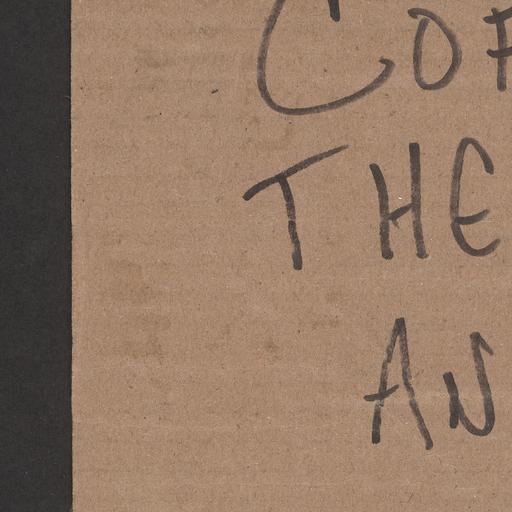 COR
THE
AN